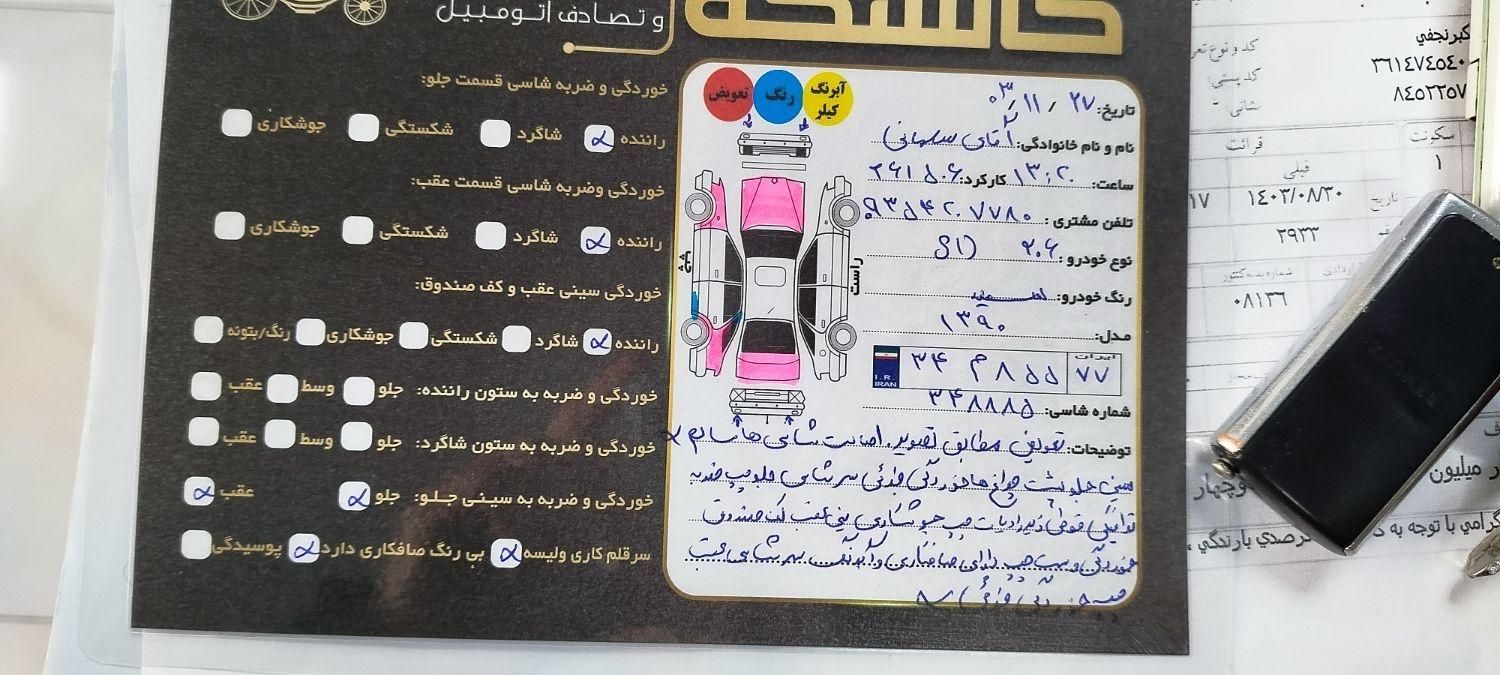 کالسکه
و تصادف اتومبیل
تعویض
رنگ
آبرنگ
کیلر
تاریخ: ۰۳/۱۱/۲۷
نام و نام خانوادگی: آقای سلمانی
ساعت: ۱۳:۲۰ کارکرد: ۲۶۱۵۰۶
تلفن مشتری: ۰۹۳۵۴۲۰۷۷۸۰
نوع خودرو: ۲۰۶ SD
رنگ خودرو: سفید
مدل: ۱۳۹۰
I.R. IRAN
۳۴ م ۸۵۵
ایران
۷۷
شماره شاسی: ۳۴۸۸۸۵
راست
چپ
توضیحات: تعویض مطابق تصویر. اصالت شاسی ها سالم
سینی جلو پشت چراغ ها خوردگی جزئی سر شاسی جلو چپ ضربه
قوطی زیر رادیات چپ جوشکاری سینی عقب کف صندوق
خوردگی و سمت چپ دارای صافکاری و آبرنگ سر شاسی عقب
چپ خوردگی جزئی
خوردگی و ضربه شاسی قسمت جلو:
راننده شاگرد شکستگی جوشکاری
خوردگی وضربه شاسی قسمت عقب:
راننده شاگرد شکستگی جوشکاری
خوردگی سینی عقب و کف صندوق:
راننده شاگرد شکستگی جوشکاری رنگ/بتونه
خوردگی و ضربه به ستون راننده: جلو وسط عقب
خوردگی و ضربه به ستون شاگرد: جلو وسط عقب
خوردگی و ضربه به سینی جلو: جلو عقب
سرقلم کاری ولیسه بی رنگ صافکاری دارد پوسیدگی
کبرنجفي
کد و نوع تعر
۳۶۱۴۷۴۵۴۰
کد پستی:
۸۴۵۲۲۵۷
نشانی: -
سکونت
۱
قرائت
قبلی
تاریخ
۱۴۰۳/۰۸/۳۰
۱۷
۲۹۳۳
۰۸۱۳۶
ر میلیون
وچهار
گرامي با توجه به د
رصدي بارندگي ،